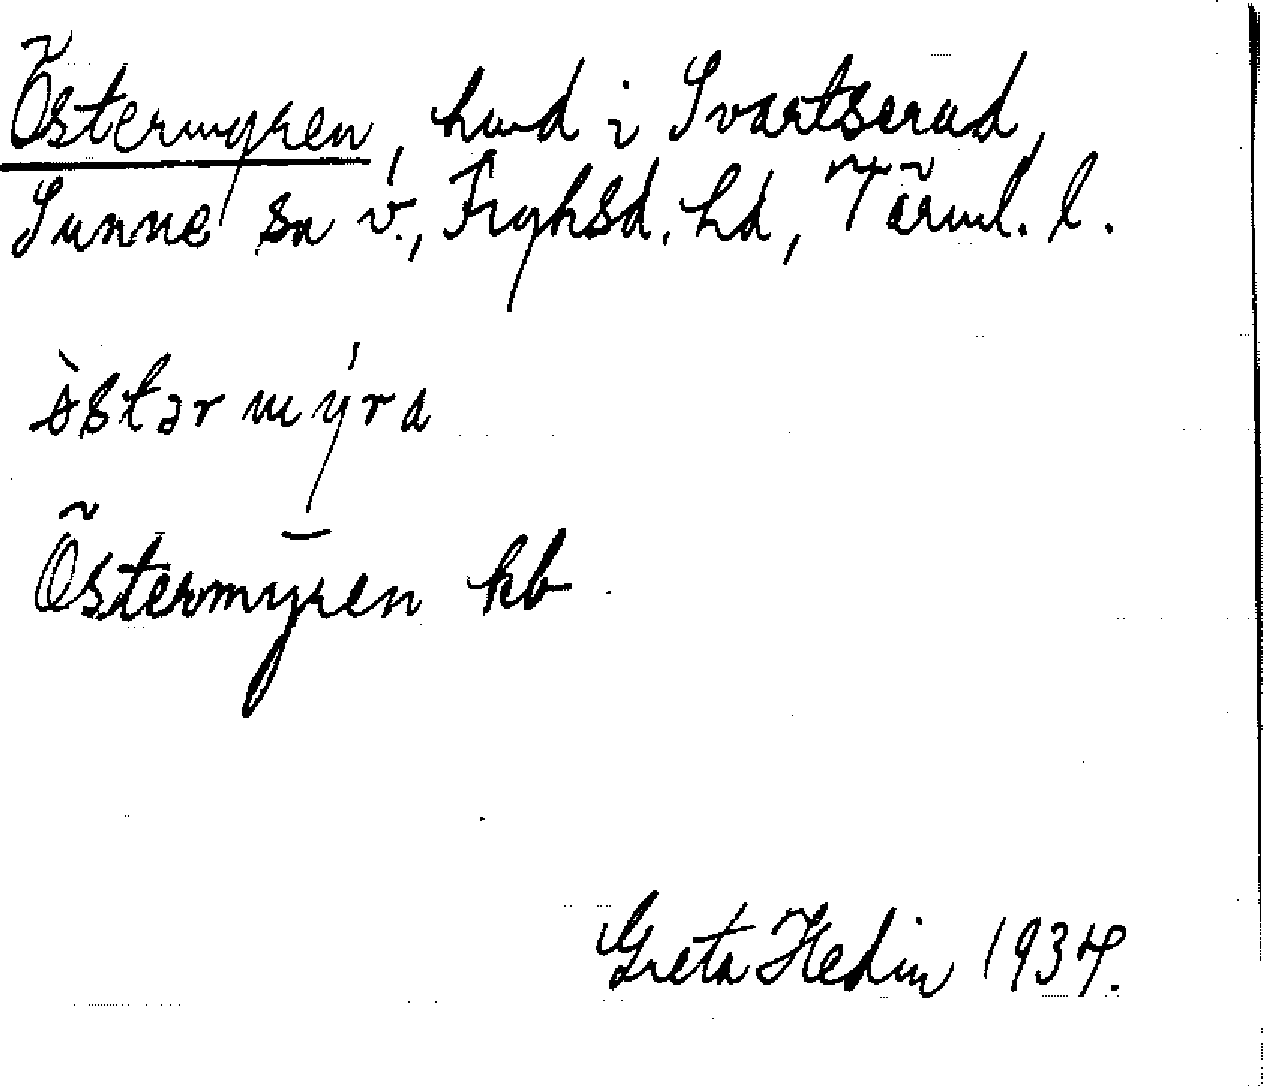 Östermyren, hmd i Svartserud,
Sunne sn v., Fryksd. hd, Värml. l.
östərmyra
Östermyren kb
Greta Hedin 1934.